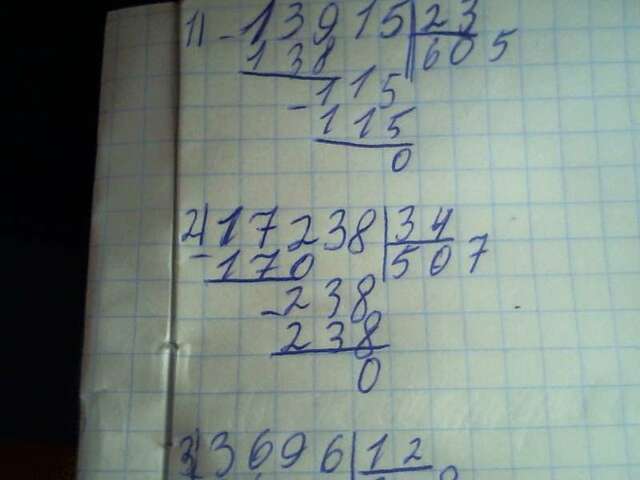 1) -13915 | 23
138 | 605
-115
115
0
2) -17238 | 34
170 | 507
-238
238
0
3) 3696 | 12